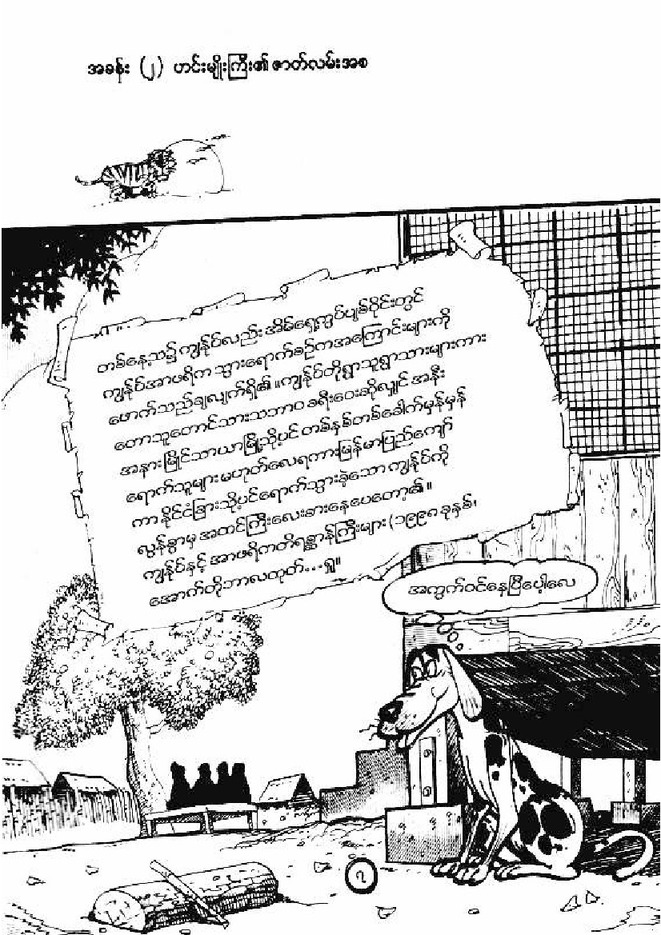 အခန်း (၂) ဟင်းမျိုးကြီး၏ ဇာတ်လမ်းအစ
တစ်နေ့သ၌ ကျွန်ုပ်လည်း အိမ်ရှေ့ကွပ်ပျစ်ဝိုင်းတွင်
ကျွန်ုပ်အာဖရိက သွားရောက်စဉ်ကအကြောင်းများကို
ဖောက်သည်ချလျက်ရှိ၏။ ကျွန်ုပ်တို့ရွာသူရွာသားများကား
တောသူတောင်သားသဘာဝ ခရီးဝေးဆိုလျှင် အနီး
အနား မြိုင်သာယာမြို့သို့ပင် တစ်နှစ်တစ်ခေါက်မှန်မှန်
ရောက်သူများ မဟုတ်လေရကားမြန်မာပြည်ကျော်
ကာ နိုင်ငံခြားသို့ပင်ရောက်သွားခဲ့သော ကျွန်ုပ်ကို
လွန်စွာမှ အထင်ကြီးလေးစားနေပေတော့၏။
ကျွန်ုပ်နှင့် အာဖရိကတိရစ္ဆာန်ကြီးများ (၁၉၉၈ ခုနှစ်၊
အောက်တိုဘာလထုတ်...ရှု။
အကွက်ဝင်နေပြီပေါ့လေ
၇